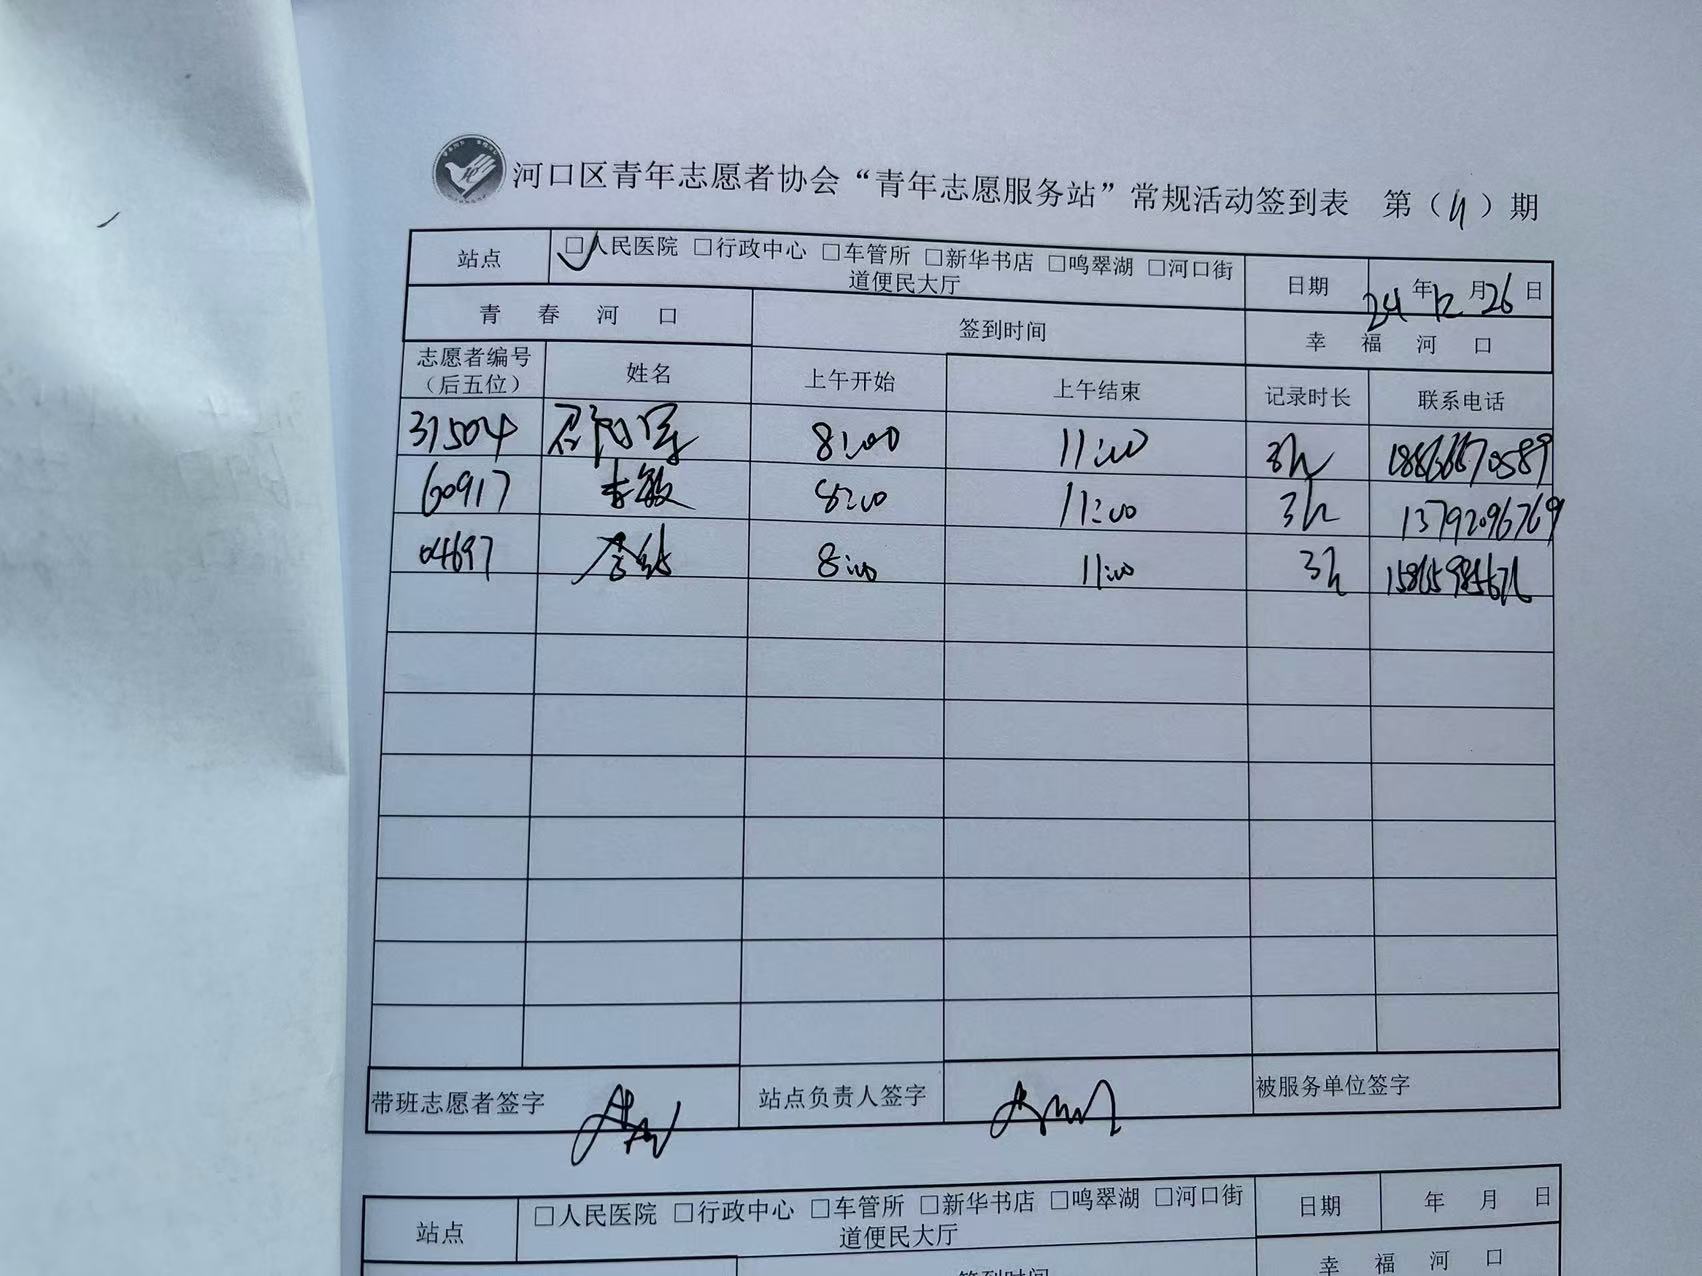 河口区青年志愿者协会“青年志愿服务站”常规活动签到表 第（11）期
站点 □人民医院 □行政中心 □车管所 □新华书店 □鸣翠湖 □河口街
道便民大厅
日期 24年12月26日
青 春 河 口 签到时间 幸 福 河 口
志愿者编号
（后五位）
姓名 上午开始 上午结束 记录时长 联系电话
31504 8:00 11:00 3h
60917 李敏 8:00 11:00 3h 13792096769
04697 8:00 11:00 3h
带班志愿者签字 站点负责人签字 被服务单位签字
站点 □人民医院 □行政中心 □车管所 □新华书店 □鸣翠湖 □河口街
道便民大厅
日期 年 月 日
签到时间 幸 福 河 口